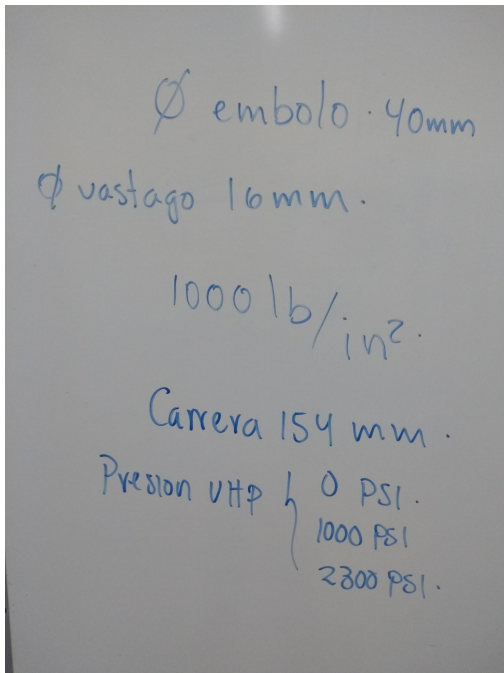 Ø embolo . 40mm
Ø vastago 16mm.
1000 lb/in².
Carrera 154 mm.
Presion UHP { 0 PSI.
1000 PSI
2300 PSI.